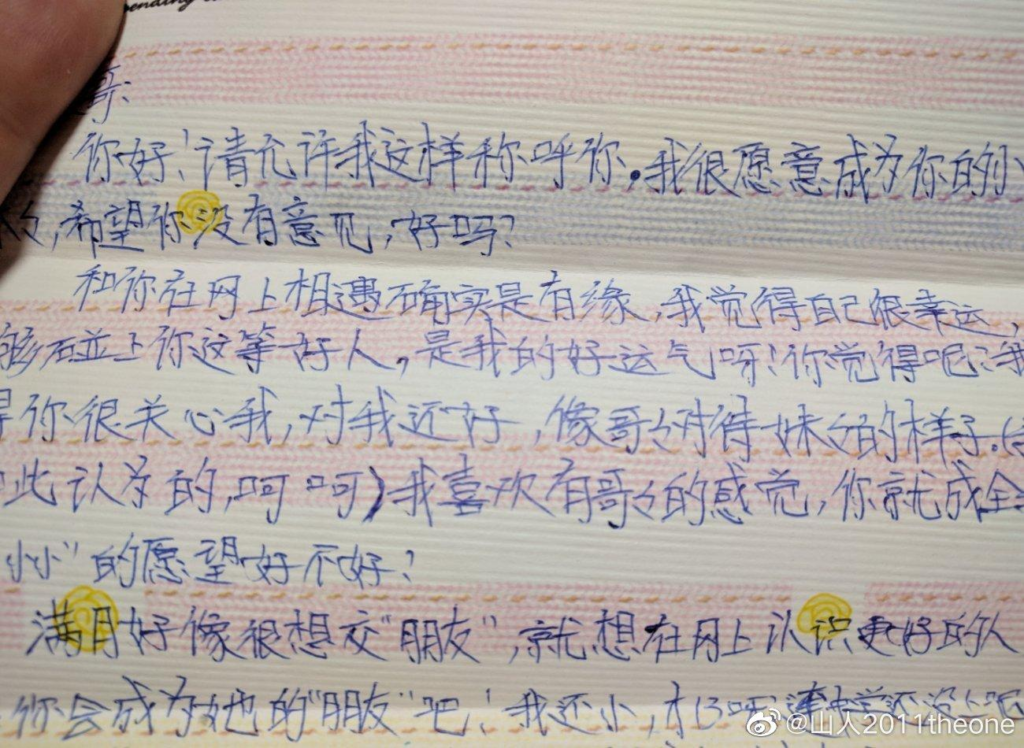 ending
哥:
你好!请允许我这样称呼你。我很愿意成为你的小
,希望你没有意见,好吗?
和你在网上相遇确实是有缘,我觉得自己很幸运,
够碰上你这等好人。是我的好运气呀!你觉得呢?我
得你很关心我,对我还好,像哥々对待妹々的样子.(
此认为的,呵呵)我喜欢有哥々的感觉,你就成全
小小"的愿望好不好?
满月好像很想交"朋友",就想在网上认识更好的人
你会成为她的"朋友"吧!我还小,才13呀
@山人2011theone